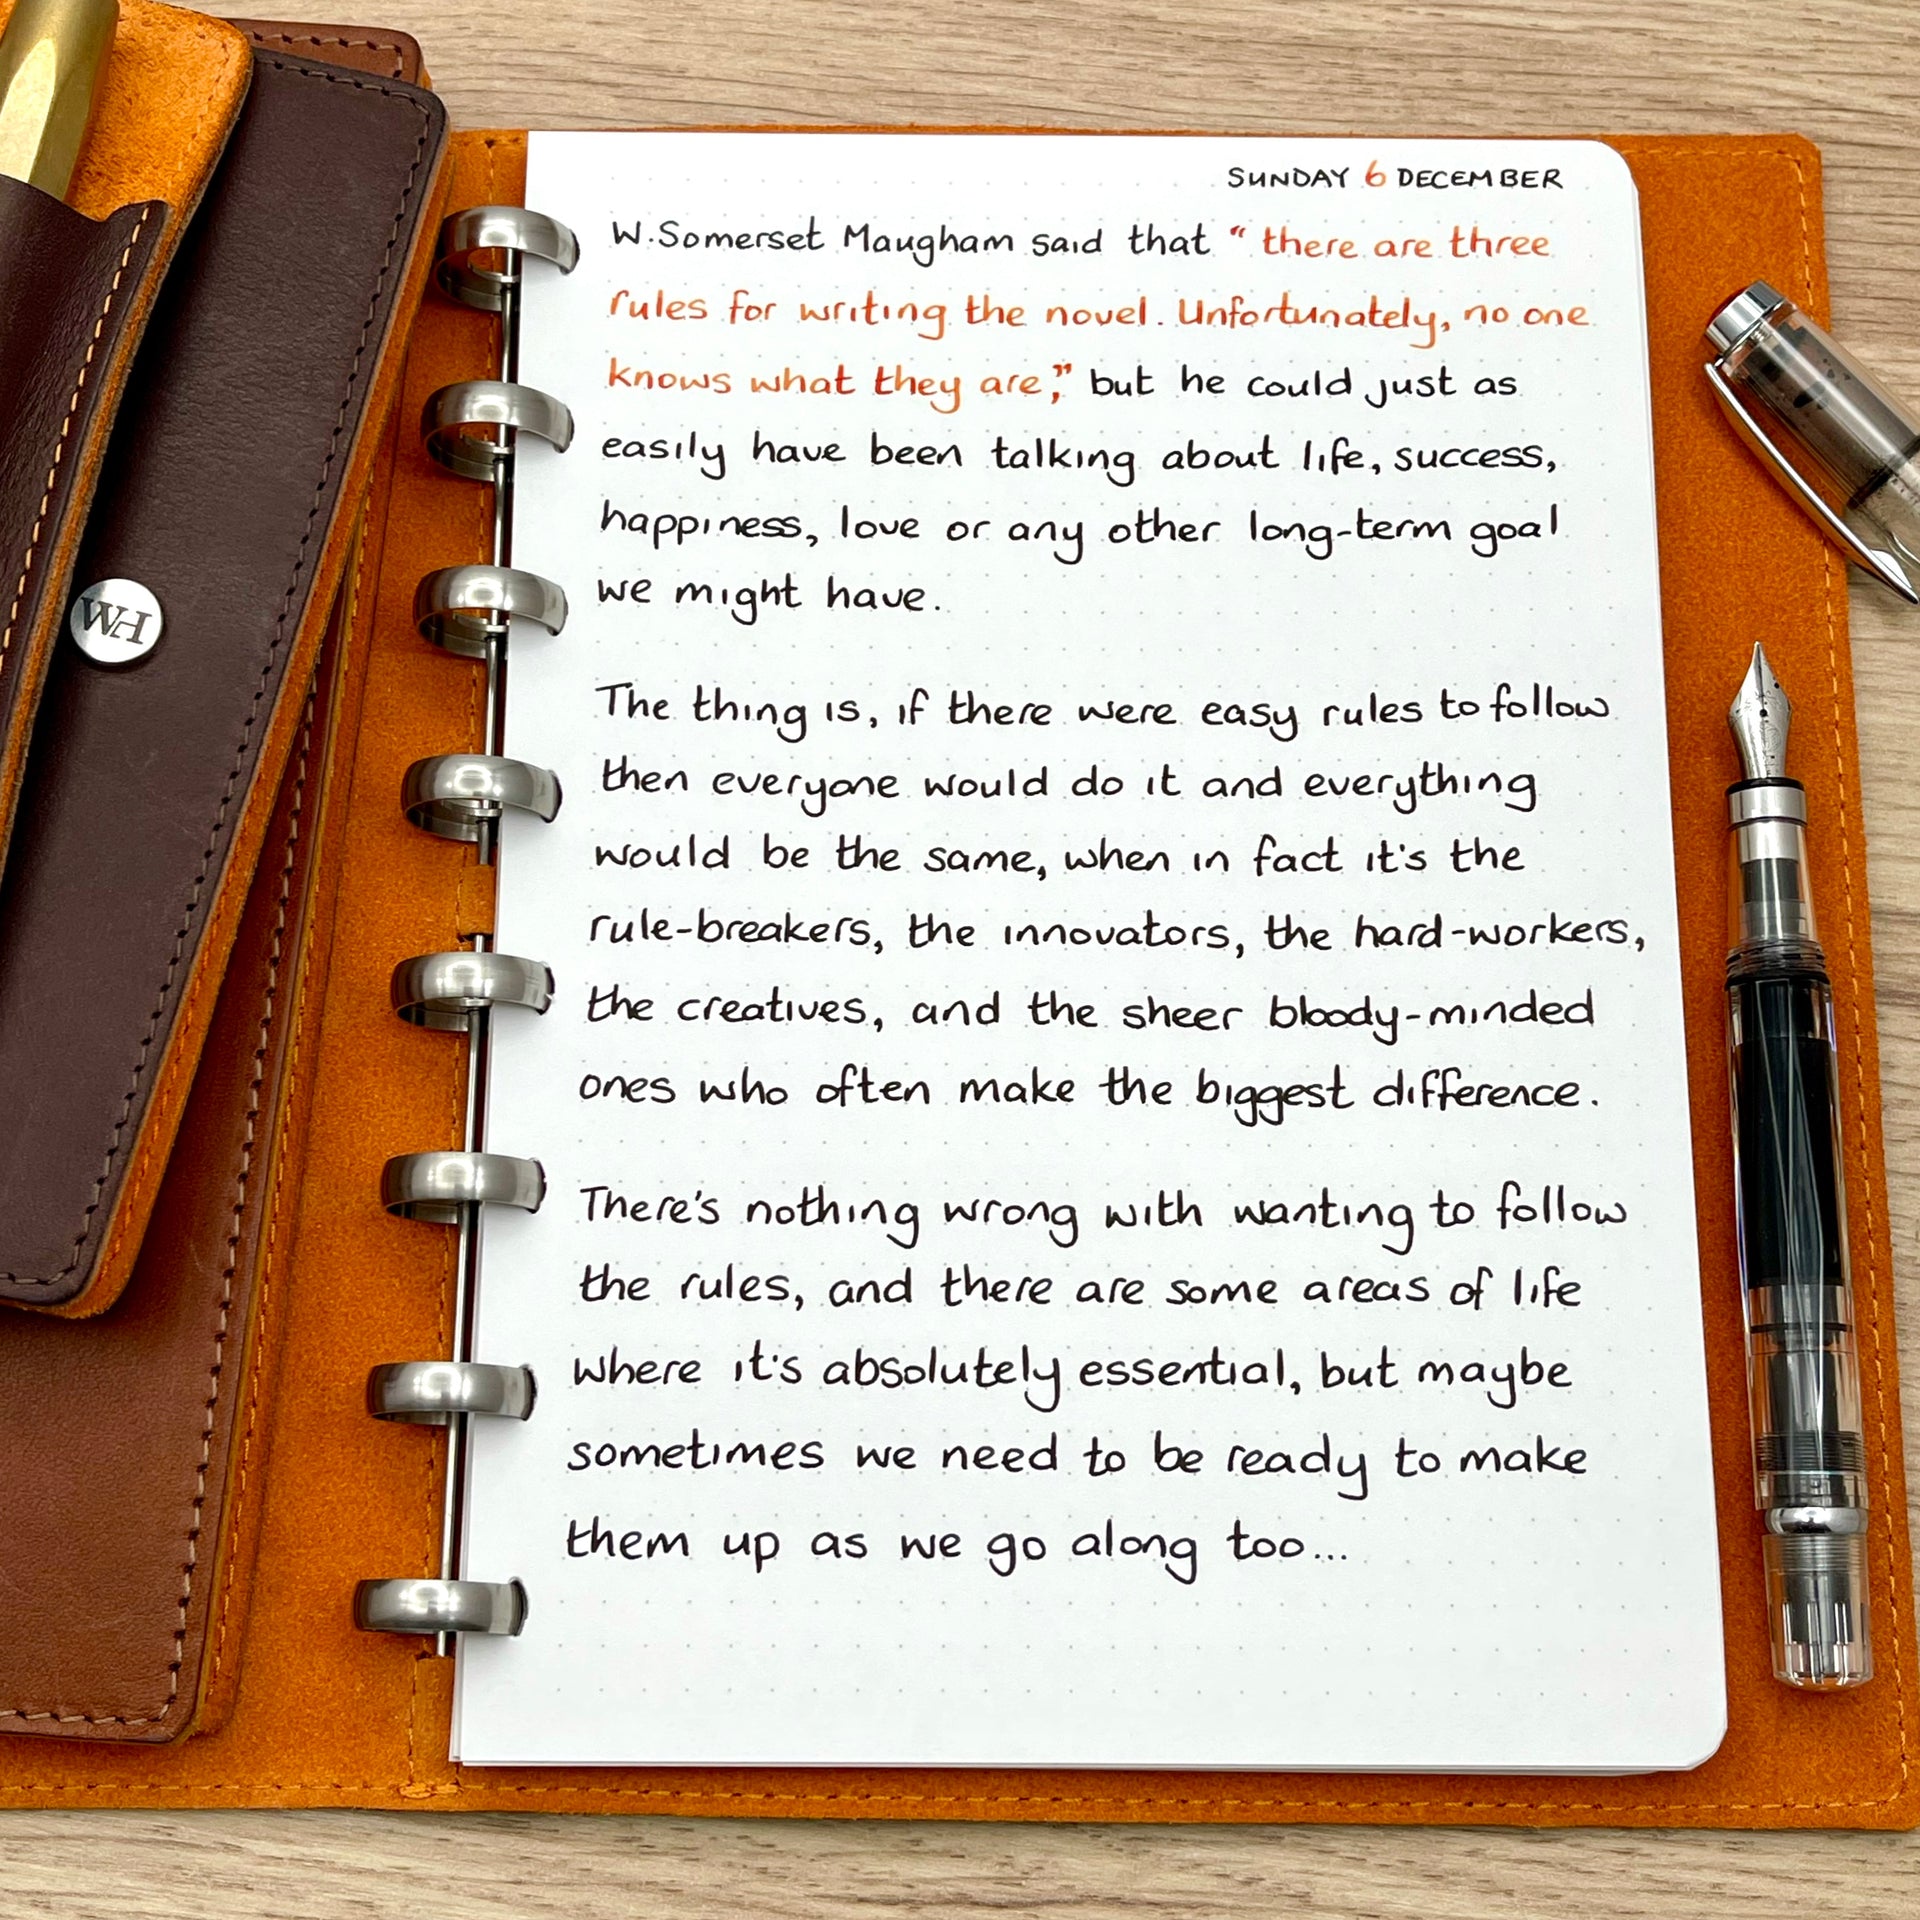 SUNDAY 6 DECEMBER
W. Somerset Maugham said that "there are three
rules for writing the novel. Unfortunately, no one
knows what they are," but he could just as
easily have been talking about life, success,
happiness, love or any other long-term goal
we might have.
The thing is, if there were easy rules to follow
then everyone would do it and everything
would be the same, when in fact it's the
rule-breakers, the innovators, the hard-workers,
the creatives, and the sheer bloody-minded
ones who often make the biggest difference.
There's nothing wrong with wanting to follow
the rules, and there are some areas of life
where it's absolutely essential, but maybe
sometimes we need to be ready to make
them up as we go along too...
WH